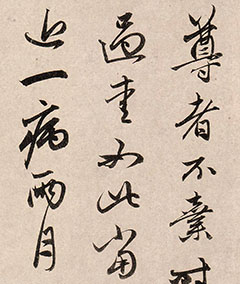 尊者不棄
過如此當
近一病兩月